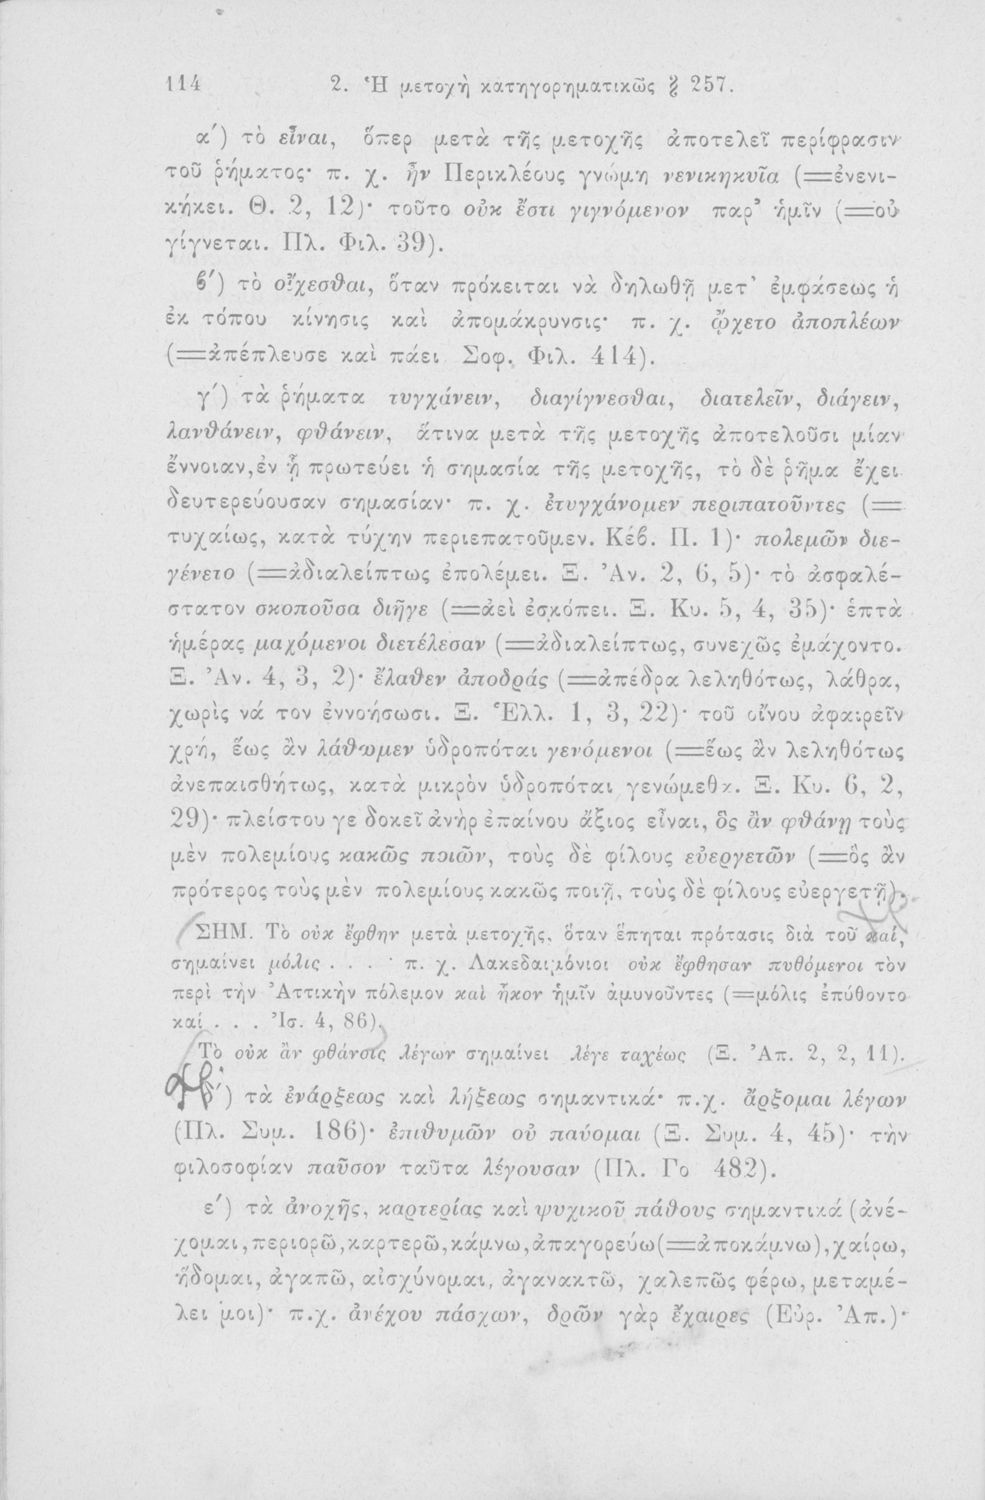 114 2. Ἡ μετοχὴ κατηγορηματικῶς § 257.
α΄) τὸ εἶναι, ὅπερ μετὰ τῆς μετοχῆς ἀποτελεῖ περίφρασιν
τοῦ ῥήματος· π. χ. ἦν Περικλέους γνώμη νενικηκυῖα (=ἐνενι-
κήκει. Θ. 2, 12)· τοῦτο οὐκ ἔστι γιγνόμενον παρ' ἡμῖν (=οὐ
γίγνεται. Πλ. Φιλ. 39).
ϐ΄) τὸ οἴχεσθαι, ὅταν πρόκειται νὰ δηλωθῇ μετ' ἐμφάσεως ἡ
ἐκ τόπου κίνησις καὶ ἀπομάκρυνσις· π. χ. ᾤχετο ἀποπλέων
(=ἀπέπλευσε καὶ πάει Σοφ. Φιλ. 414).
γ΄) τὰ ῥήματα τυγχάνειν, διαγίγνεσθαι, διατελεῖν, διάγειν,
λανθάνειν, φθάνειν, ἅτινα μετὰ τῆς μετοχῆς ἀποτελοῦσι μίαν
ἔννοιαν,ἐν ᾗ πρωτεύει ἡ σημασία τῆς μετοχῆς, τὸ δὲ ῥῆμα ἔχει
δευτερεύουσαν σημασίαν· π. χ. ἐτυγχάνομεν περιπατοῦντες (=
τυχαίως, κατὰ τύχην περιεπατοῦμεν. Κέϐ. Π. 1)· πολεμῶν διε-
γένετο (=ἀδιαλείπτως ἐπολέμει. Ξ. Ἀν. 2, 6, 5)· τὸ ἀσφαλέ-
στατον σκοποῦσα διῆγε (=ἀεὶ ἐσκόπει. Ξ. Κυ. 5, 4, 35)· ἑπτὰ
ἡμέρας μαχόμενοι διετέλεσαν (=ἀδιαλείπτως, συνεχῶς ἐμάχοντο.
Ξ. Ἀν. 4, 3, 2)· ἔλαθεν ἀποδράς (=ἀπέδρα λεληθότως, λάθρα,
χωρὶς νά τον ἐννοήσωσι. Ξ. Ἑλλ. 1, 3, 22)· τοῦ οἴνου ἀφαιρεῖν
χρή, ἕως ἂν λάθωμεν ὑδροπόται γενόμενοι (=ἕως ἂν λεληθότως
ἀνεπαισθήτως, κατὰ μικρὸν ὑδροπόται γενώμεθα. Ξ. Κυ. 6, 2,
29)· πλείστου γε δοκεῖ ἀνὴρ ἐπαίνου ἄξιος εἶναι, ὃς ἂν φθάνῃ τοὺς
μὲν πολεμίους κακῶς ποιῶν, τοὺς δὲ φίλους εὐεργετῶν (=ὃς ἂν
πρότερος τοὺς μὲν πολεμίους κακῶς ποιῇ, τοὺς δὲ φίλους εὐεργετῇ).
ΣΗΜ. Τὸ οὐκ ἔφθην μετὰ μετοχῆς, ὅταν ἕπηται πρότασις διὰ τοῦ καί,
σημαίνει μόλις . . . · π. χ. Λακεδαιμόνιοι οὐκ ἔφθησαν πυθόμενοι τὸν
περὶ τὴν Ἀττικὴν πόλεμον καὶ ἧκον ἡμῖν ἀμυνοῦντες (=μόλις ἐπύθοντο
καί . . . Ἰσ. 4, 86).
Τὸ οὐκ ἂν φθάνοις λέγων σημαίνει λέγε ταχέως (Ξ. Ἀπ. 2, 2, 11).
δ΄) τὰ ἐνάρξεως καὶ λήξεως σημαντικά· π.χ. ἄρξομαι λέγων
(Πλ. Συμ. 186)· ἐπιθυμῶν οὐ παύομαι (Ξ. Συμ. 4, 45)· τὴν
φιλοσοφίαν παῦσον ταῦτα λέγουσαν (Πλ. Γο 482).
ε΄) τὰ ἀνοχῆς, καρτερίας καὶ ψυχικοῦ πάθους σημαντικά (ἀνέ-
χομαι, περιορῶ, καρτερῶ, κάμνω, ἀπαγορεύω(=ἀποκάμνω), χαίρω,
ἥδομαι, ἀγαπῶ, αἰσχύνομαι, ἀγανακτῶ, χαλεπῶς φέρω, μεταμέ-
λει μοι)· π.χ. ἀνέχου πάσχων, δρῶν γὰρ ἔχαιρες (Εὐρ. Ἀπ.)·